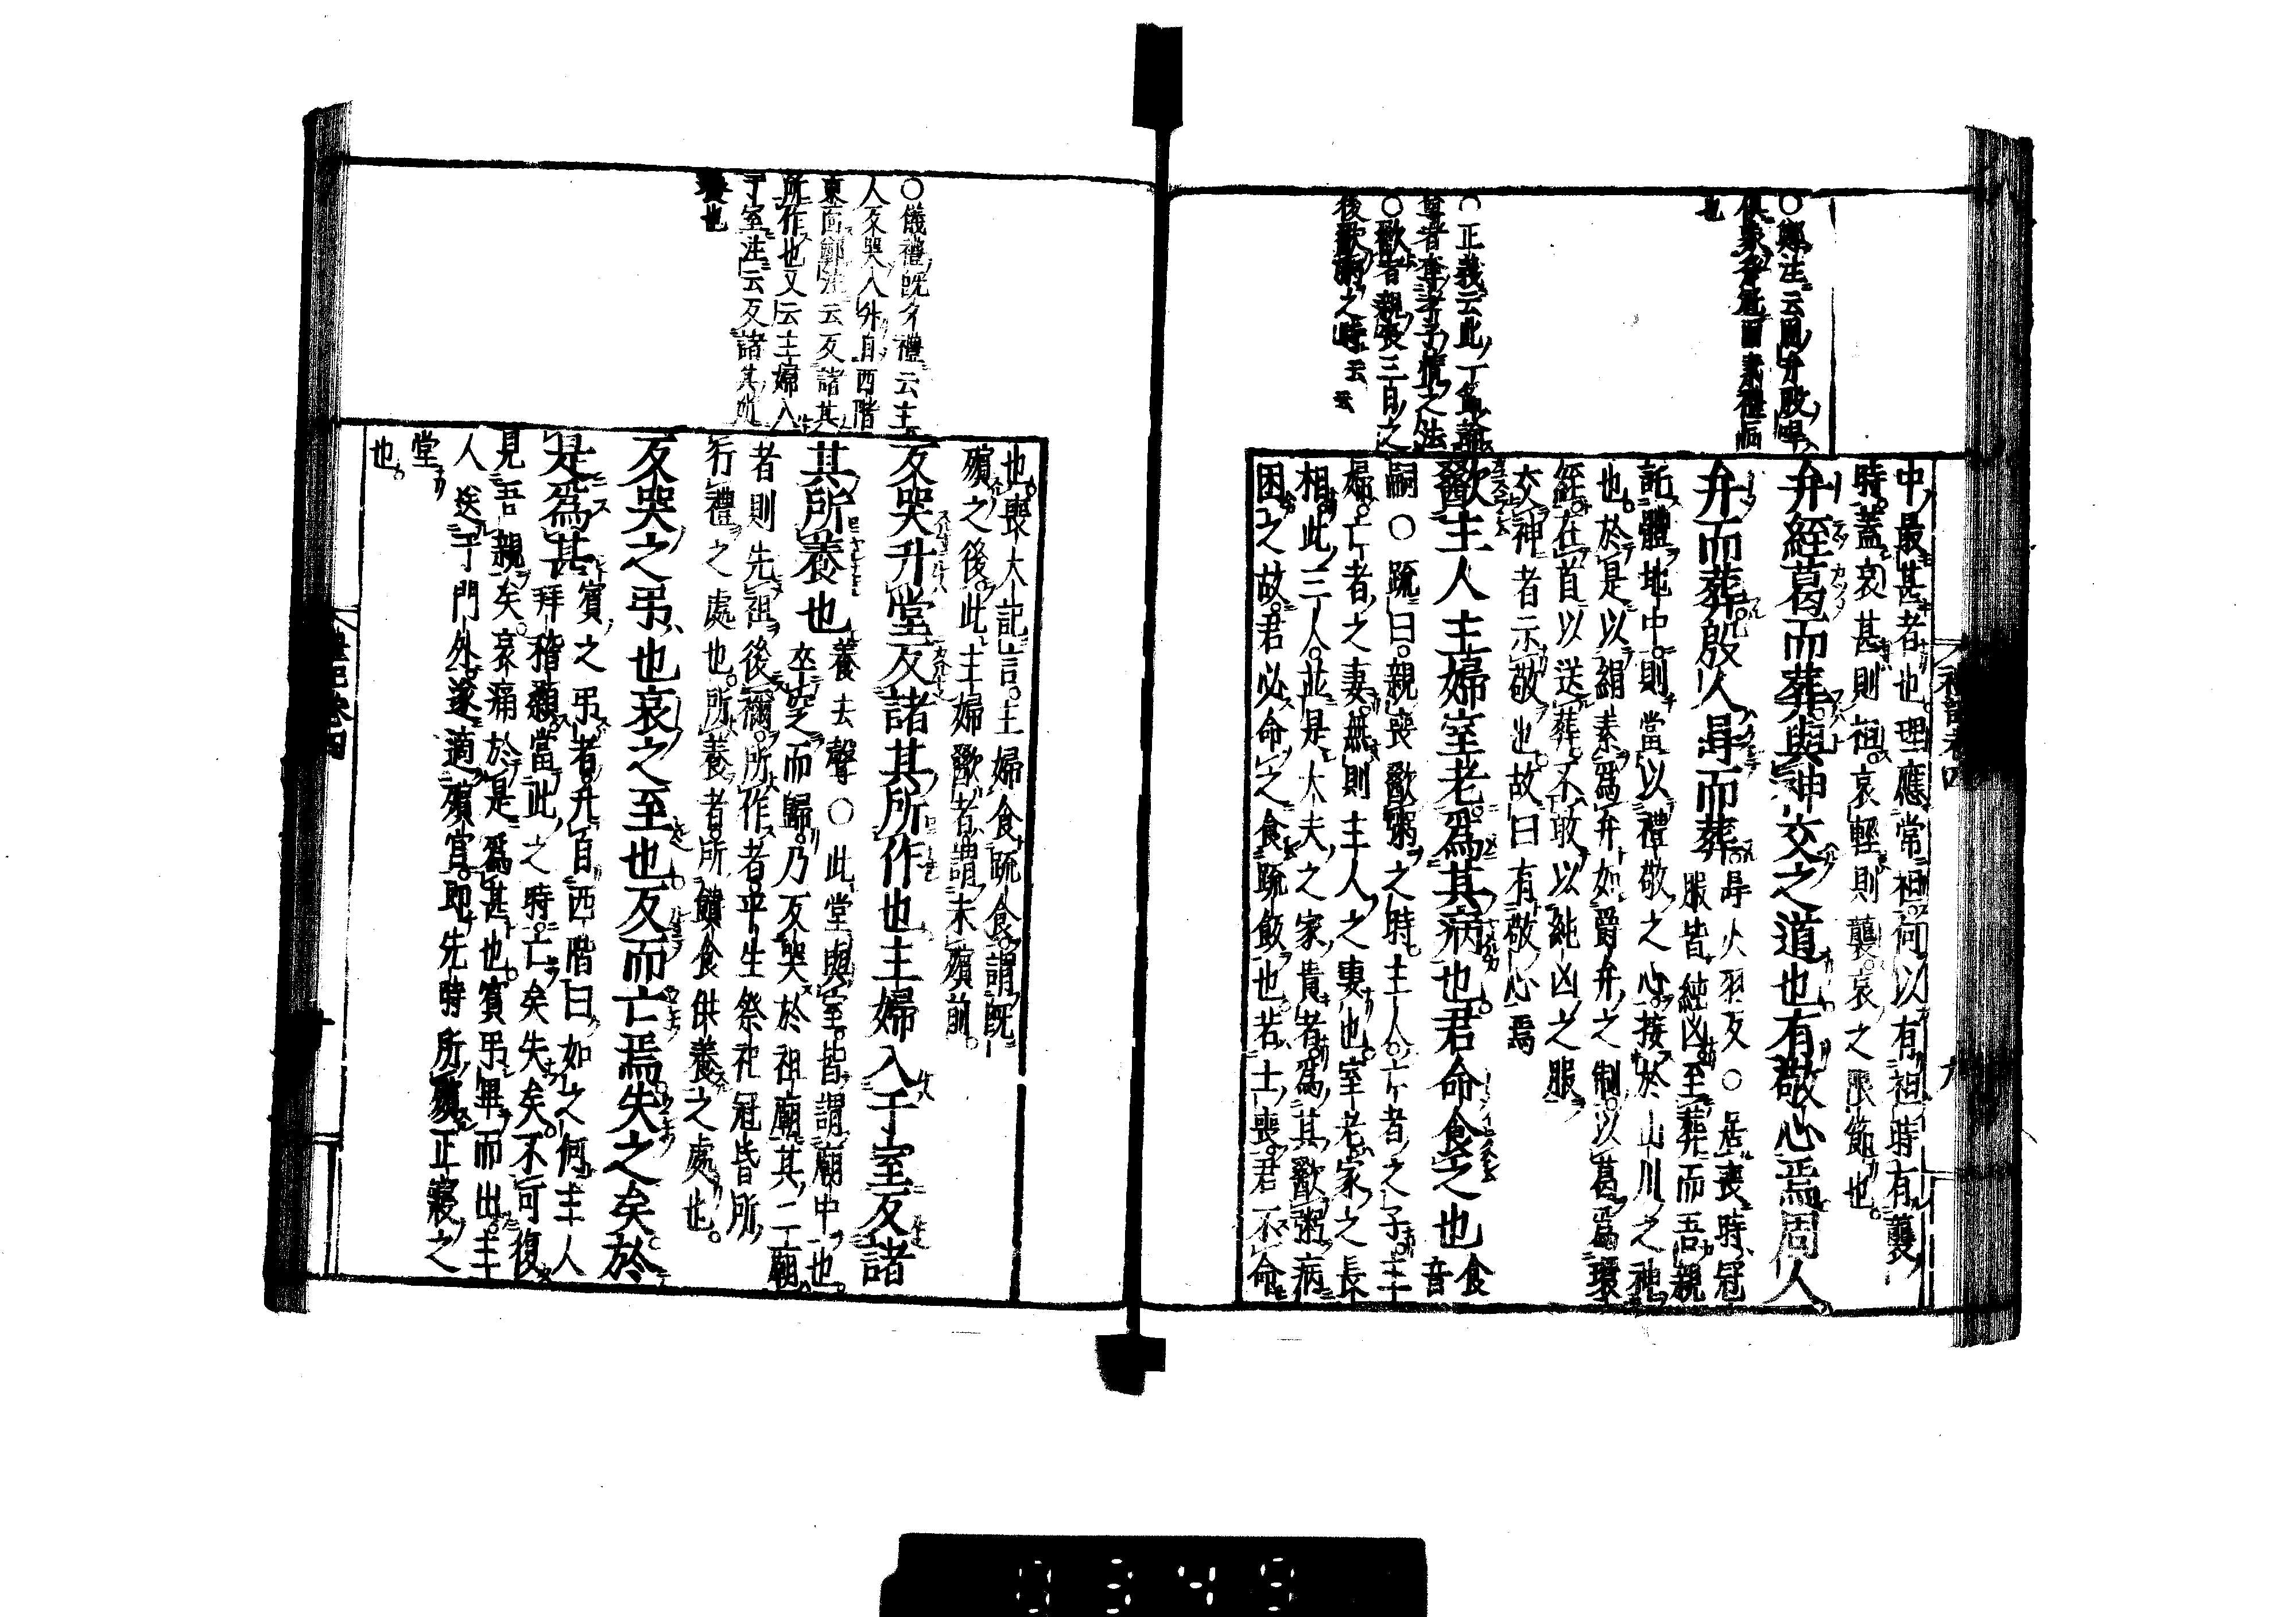 〇鄭注云周弁殷冔
俱象祭冠而素禮同
也
中最甚者也理應常袒何以有袒時有襲
時蓋哀甚則袒哀輕則襲哀之限節也
弁絰葛而葬與神交之道也有敬心焉周人
弁而葬殷人冔而葬
冔火羽反〇居喪時冠
服皆純凶至葬而吾親
託體地中則當以禮敬之心接於山川之神
也於是以絹素爲弁如爵弁之制以葛爲環
絰在首以送葬不敢以純凶之服
交神者示敬也故曰有敬心焉
〇正義云此一節論
尊者奪孝子情之法
〇歠者親喪三日之
後歠粥之時云云
歠主人主婦室老爲其病也君命食之也
食
音
嗣〇疏曰親喪歠粥之時主人亡者之子主
婦亡者之妻無則主人之妻也室老家之長
相此三人並是大夫之家貴者爲其歠粥病
困之故君必命之食疏飯也若士喪君不命
也喪大記言主婦食疏食謂既
殯之後此主婦歠者謂未殯前
〇儀禮既夕禮云主
人反哭入升自西階
東面鄭注云反諸其
所作也又云主婦入
于室注云反諸其所
養也
反哭升堂反諸其所作也主婦入于室反諸
其所養也
養去聲〇此堂與室皆謂廟中也
卒窆而歸乃反哭於祖廟其二廟
者則先祖後禰所作者平生祭祀冠昏所
行禮之處也所養者所饋食供養之處也
反哭之弔也哀之至也反而亡焉失之矣於
是爲甚
賓之弔者升自西階曰如之何主人
拜稽顙當此之時亡矣失矣不可復
見吾親矣哀痛於是爲甚也賓弔畢而出主
人送于門外遂適殯宮即先時所殯正寢之
堂
也
禮記卷四